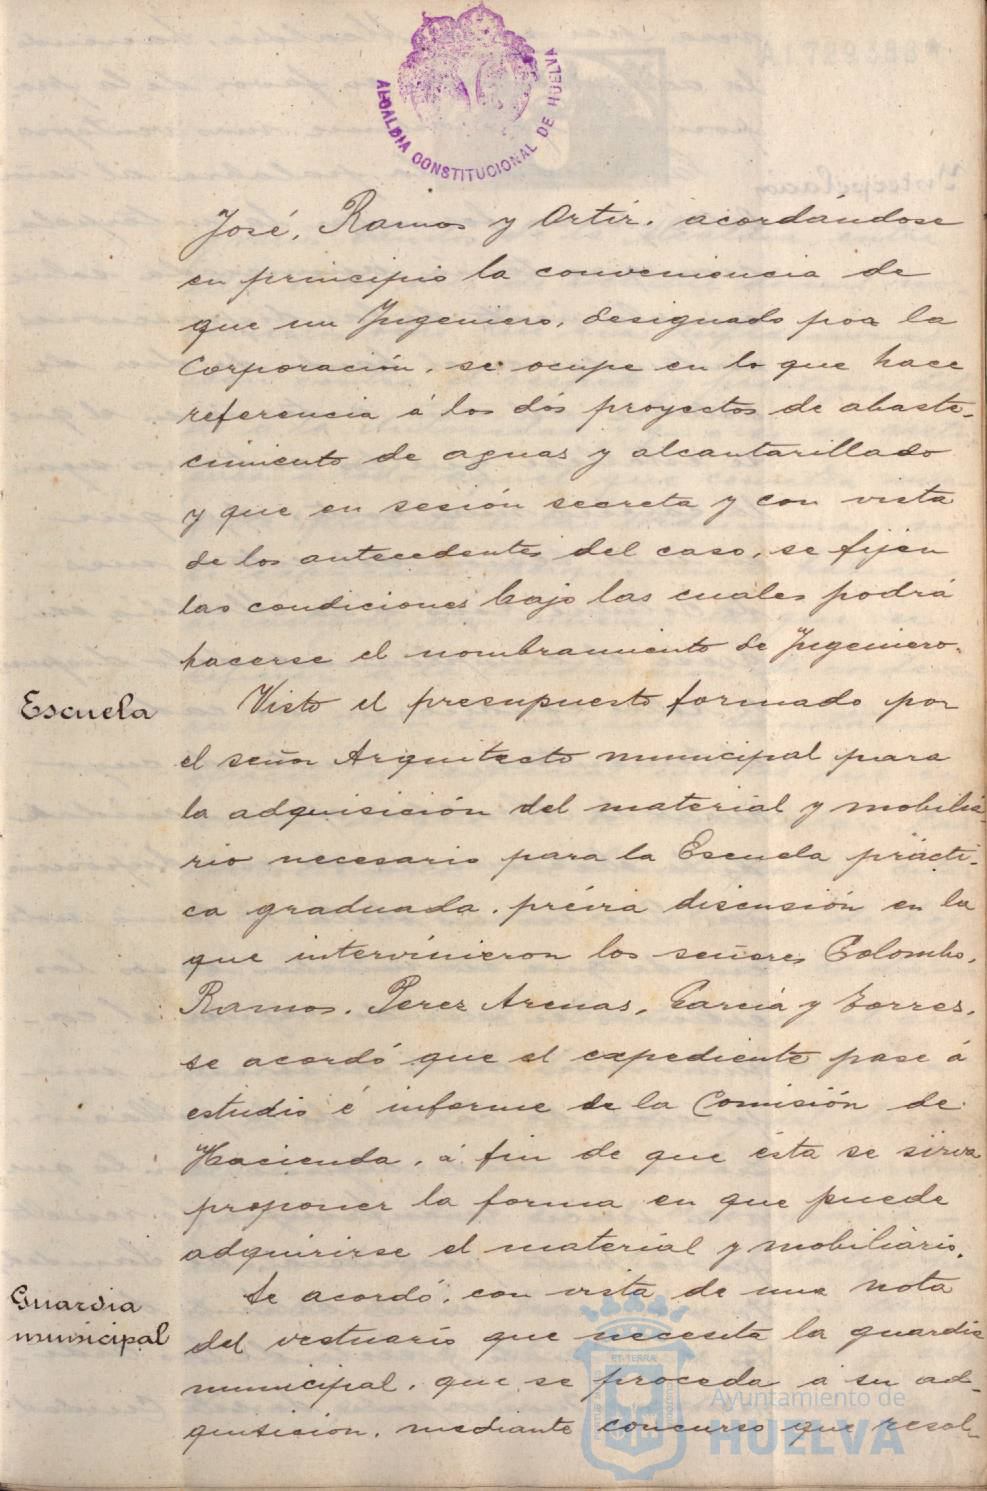 ALCALDIA CONSTITUCIONAL DE HUELVA
José, Ramos y Ortiz, acordándose
en principio la conveniencia de
que un Ingeniero, designado por la
Corporación, se ocupe en lo que hace
referencia á los dós proyectos de abaste-
cimiento de aguas y alcantarillado
y que en sesión secreta y con vista
de los antecedentes del caso, se fijen
las condiciones bajo las cuales podrá
hacerse el nombramiento de Ingeniero.
Escuela
Visto el presupuesto formado por
el señor Arquitecto municipal para
la adquisición del material y mobilia-
rio necesario para la Escuela práctí-
ca graduada, prévia discusión en la
que intervinieron los señores Colombo,
Ramos, Perez Arenas, García y Torres,
se acordó que el expediente pase á
estudio é informe de la Comisión de
Hacienda, á fin de que ésta se sirva
proponer la forma en que puede
adquirirse el material y mobiliario.
Guardia
municipal
Se acordó, con vista de una nota
del vestuario que necesita la guardia
municipal, que se proceda á su ad-
quisicion, mediante concurso que resol-
Ayuntamiento de
HUELVA